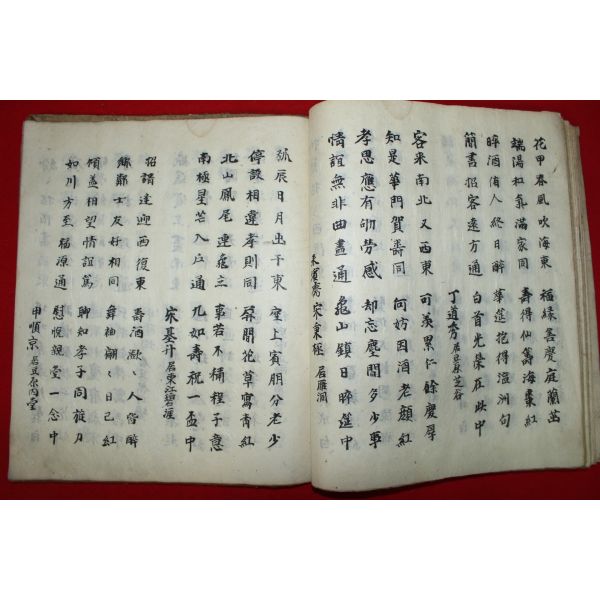 花甲春風吹海東 福緑善慶庭蘭茁
湯和氣滿家同 壽得仙籌海棗紅
晬酒侑人終日醉 華莚抱得瀛洲句
簡書招客遠方通 白首光榮在此中
丁道秀 居豆原芝谷
客来南北又西東 可羨累仁餘慶厚
知是華門賀壽同 何妨因酒老顔紅
孝思應有劬勞感 却忘塵間多少事
情誼無非曲盡通 龜山鎮日晬莚中
宋秉 居雁洞
弧辰日月出于東 座上賓朋分老少
停設相違孝則同 屏間花草寫青紅
北山鳳尾連龜 事若不稱程子意
南極星芒入戶通 九如壽祝一盃中
宋基升 居東江碧涯
招請迎西復東 壽酒々人皆醉
鄰士友好相同 舞袖翩々日已紅
傾盖相望情誼篤 聊知孝子同
如川方至福源通 慰悅親堂一念中
申順京 居豆原內堂